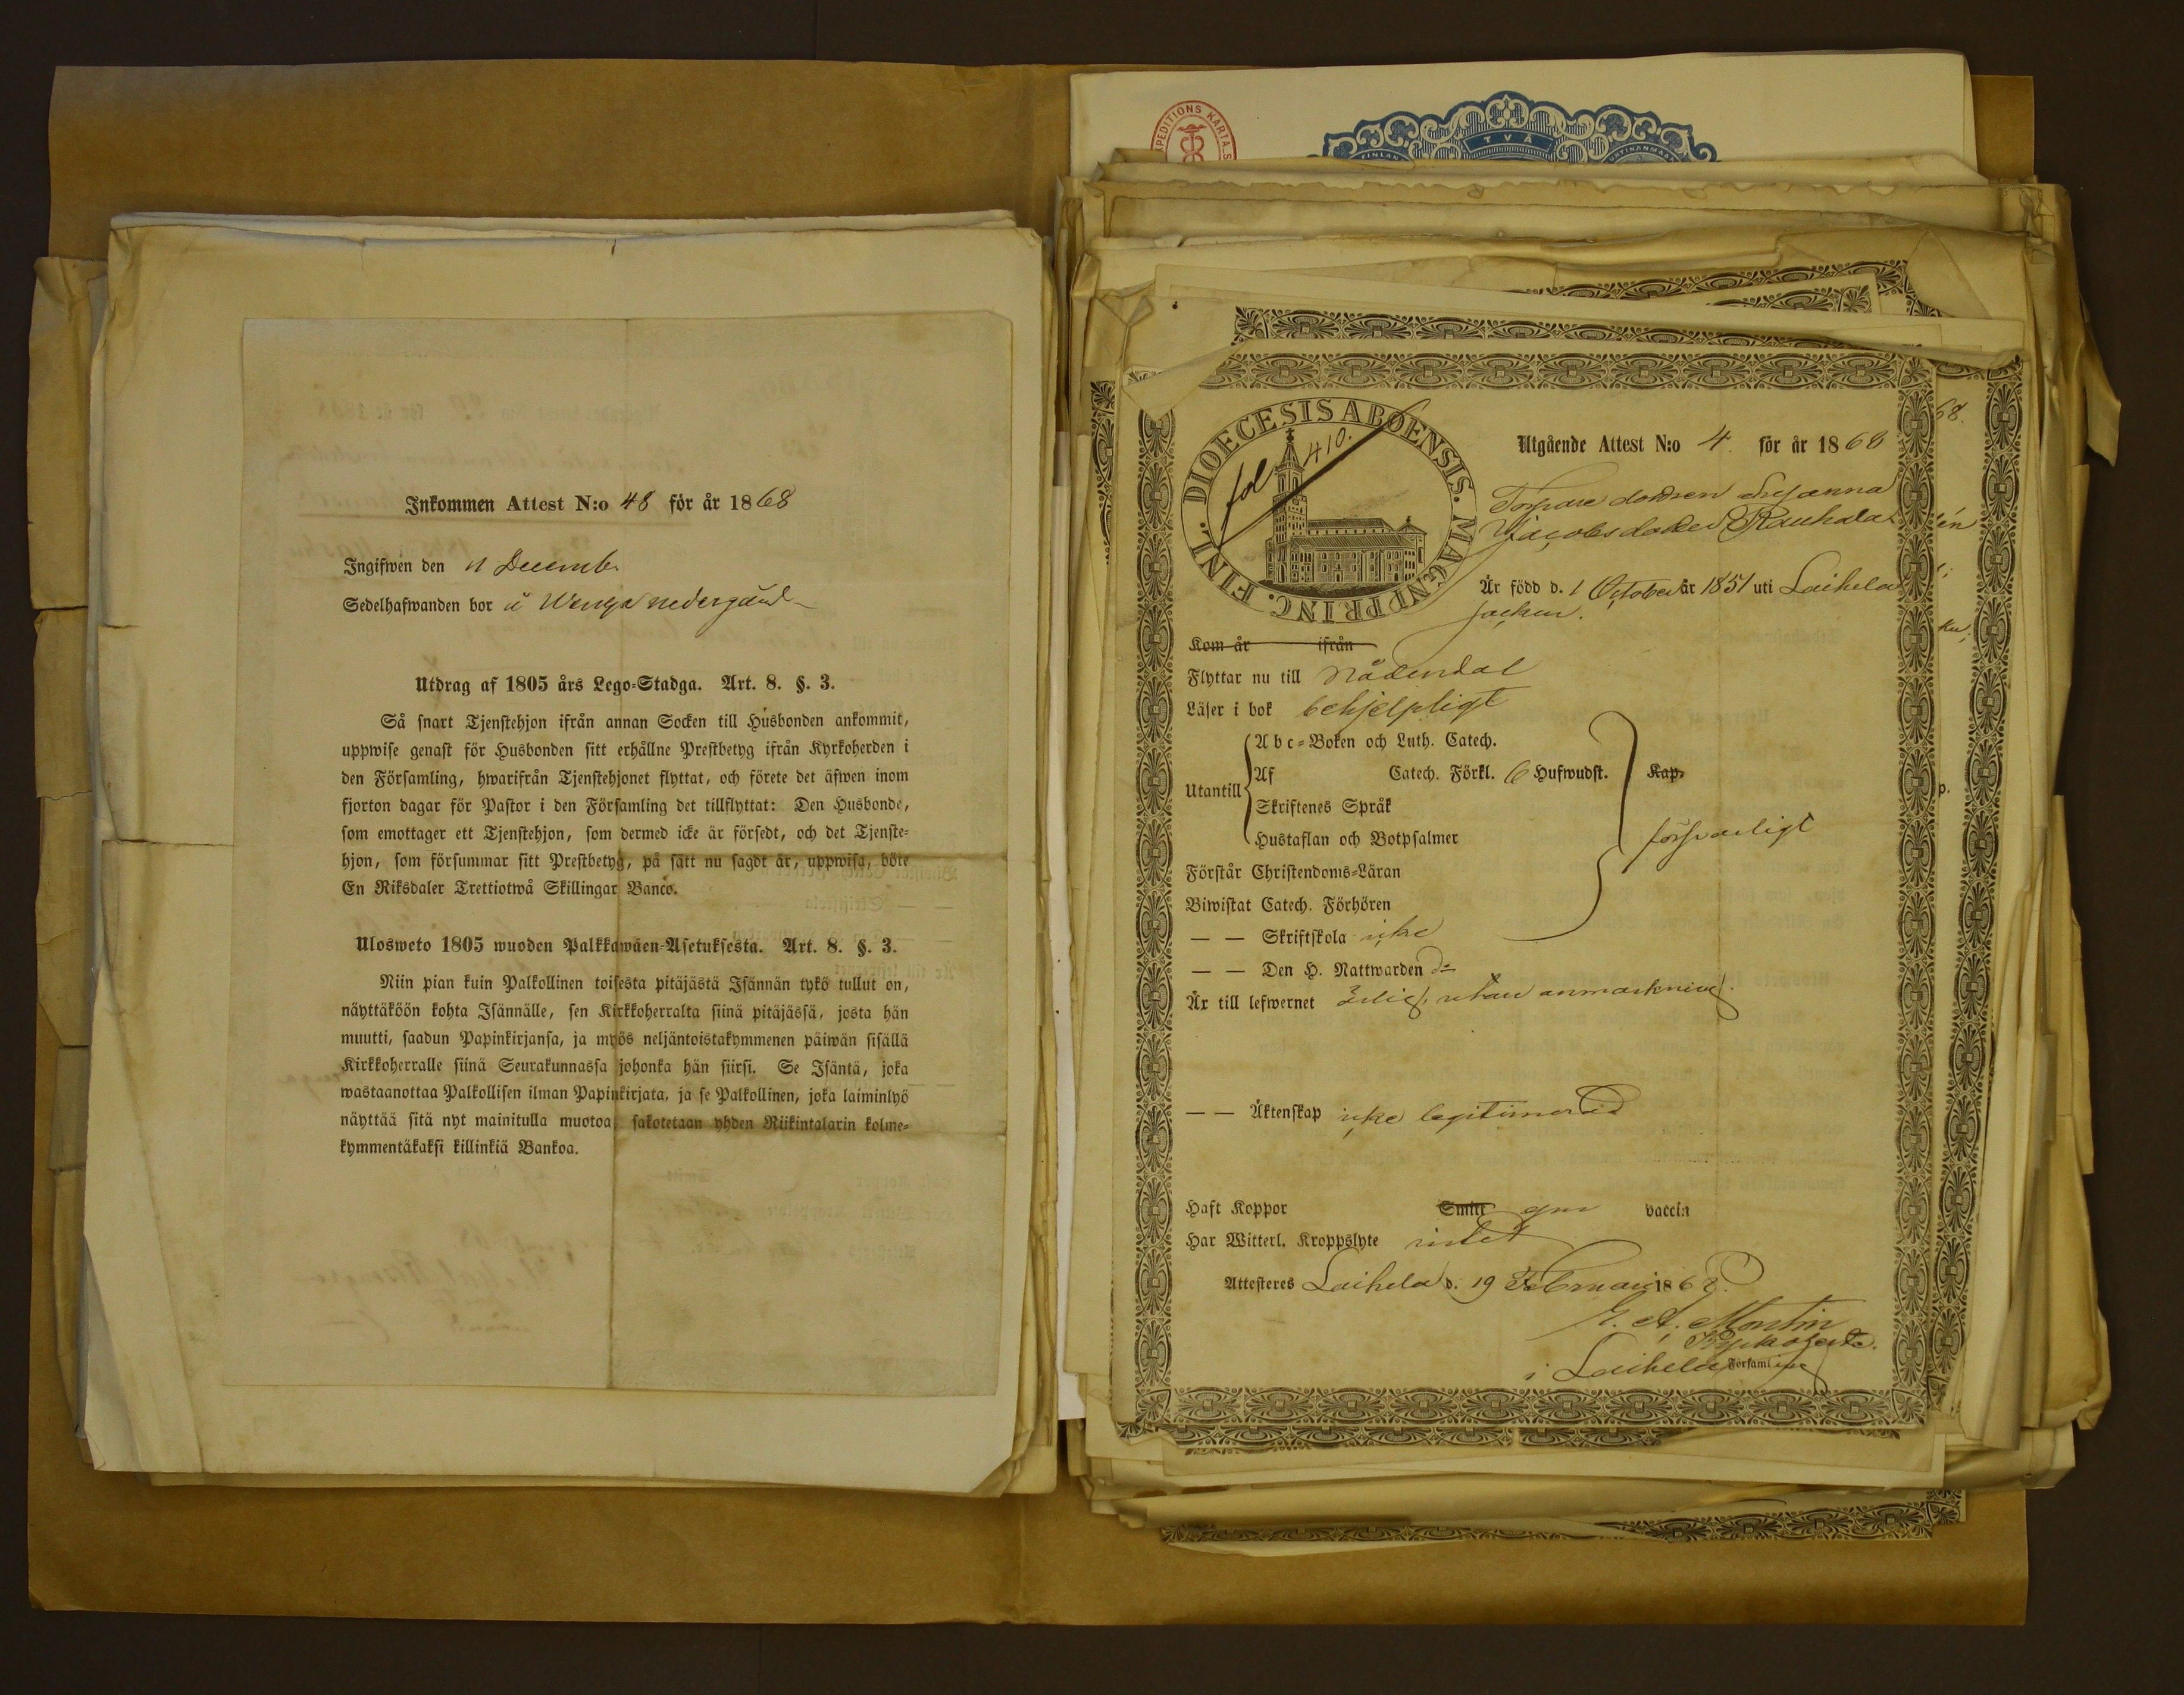 Inkommen Attest N:o 48 för år 1868
Ingifwen den 11 Decemb.
Sedelhafwanden bor å Wenga nedergård
Utdrag af 1805 års Lego-Stadga. Art. 8. §. 3.
Så snart Tjenstehjon ifrån annan Socken till Husbonden ankommit,
uppwise genast för Husbonden sitt erhållne Prestbetyg ifrån Kyrkoherden i
den Församling, hwarifrån Tjenstehjonet flyttat, och förete det äfwen inom
fjorton dagar för Pastor i den Församling det tillflyttat: Den Husbonde,
som emottager ett Tjenstehjon, som dermed icke är försedt, och det Tjenste-
hjon, som försummar sitt Prestbetyg, på sätt nu sagdt är, uppwisa, böte
En Riksdaler Trettiotwå Skillingar Banco.
Ulosweto 1805 wuoden Palkkawäen-Asetuksesta. Art. 8. §. 3.
Niin pian kuin Palkollinen toisesta pitäjästä Isännän tykö tullut on,
näyttäköön kohta Isännälle, sen Kirkkoherralta siinä pitäjässä, josta hän
muutti, saadun Papinkirjansa, ja myös neljäntoistakymmenen päiwän sisällä
Kirkkoherralle siinä Seurakunnassa johonka hän siirsi. Se Isäntä, joka
wastaanottaa Palkollisen ilman Papinkirjata, ja se Palkollinen, joka laiminlyö
näyttää sitä nyt mainitulla muotoa, sakotetaan yhden Riikintalarin kolme-
kymmentäkaksi killinkiä Bankoa.
EXPEDITIONS KARTA.S
TVÅ
FINLAN
DIOECESIS ABOENSIS. MAGN. PRINC. FINL.
fol 410.
Utgående Attest N:o 4. för år 1868
Torpare dottren Susanna
Jacobsdotter Rauhala
Är född d. 1 October år 1851 uti Laihela
socken.
Kom år ifrån
Flyttar nu till Nådendal
Läser i bok behjelpligt
Utantill
Abc-Boken och Luth. Catech.
Af Catech. Förkl. 6 Hufwudst. Kap.
Skriftenes Språk
Hustaflan och Botpsalmer
försvarligt
Förstår Christendoms-Läran
Biwistat Catech. Förhören
— — Skriftskola icke
— — Den H. Nattwarden d:o
Är till lefwernet ärlig, utan anmärkning.
— — Äktenskap icke legitimerad
Haft Koppor Smitt gm vaccin
Har Witterl. Kroppslyte intet
Attesteres Laihela d. 19 Februari 1868.
G. A. Montin
Kyrkoherde.
i Laihela Församling
68.
én
ku,
p.